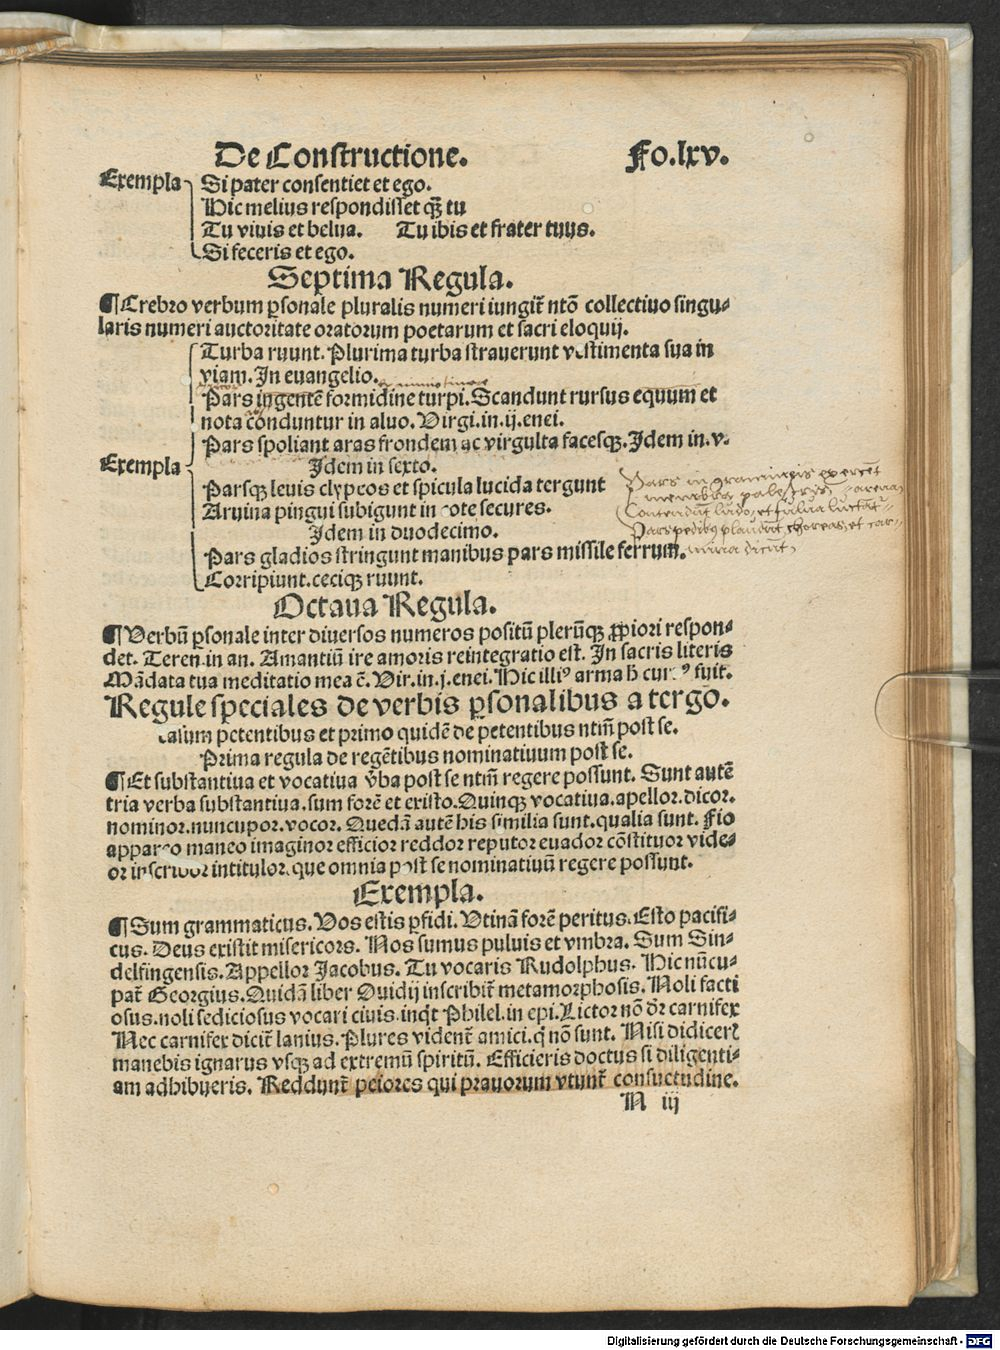 De Constructione. Fo.lxv.
Exempla Si pater consentiet et ego.
Hic melius respondisset qȝ tu
Tu viuis et belua. Tu ibis et frater tuus.
Si feceris et ego.
Septima Regula.
¶ Crebro verbum ꝑsonale pluralis numeri iungit̃ ntõ collectiuo singu⸗
laris numeri auctoritate oratorum poetarum et sacri eloquij.
Turba ruunt. Plurima turba strauerunt vestimenta sua in
viam. In euangelio.
Pars ingentẽ formidine turpi. Scandunt rursus equum et
nota conduntur in aluo. Virgi. in. ij. enei.
Pars spoliant aras frondem ac virgulta facesqȝ. Idem in. v.
Exempla Idem in sexto.
Parsqȝ leuis clypeos et spicula lucida tergunt
Aruina pingui subigunt in cote secures.
Idem in duodecimo.
Pars gladios stringunt manibus pars missile ferrum.
Corripiunt. ceciqȝ ruunt.
Pars in gramineis exercẽt
membra palestris arena
Contendũt ludo, et fulua luctãt᷑
Pars pedibꝰ plaudũt choreas, et car⸗
mina dicũt
Octaua Regula.
¶ Verbũ ꝑsonale inter diuersos numeros positũ plerũqȝ ꝓpiori respon⸗
det. Teren. in an. Amantiũ ire amoris reintegratio est. In sacris literis
Mãdata tua meditatio mea ẽ. Vir. in. j. enei. Hic illiꝰ arma h̃ curꝰ fuit.
Regule speciales de verbis ꝑsonalibus a tergo.
casum petentibus et primo quidẽ de petentibus ntm̃ post se.
Prima regula de regẽtibus nominatiuum post se.
¶ Et substantiua et vocatiua v̾ba post se ntm̃ regere possunt. Sunt autẽ
tria verba substantiua. sum forẽ et existo. Quinqȝ vocatiua. apellor. dicor.
nominor. nuncupor. vocor. Quedã autẽ his similia sunt. qualia sunt. Fio
appareo maneo imaginor efficior reddor reputor euador cõstituor vide⸗
or inscribor intitulor. que omnia post se nominatiuũ regere possunt.
Exempla.
¶ Sum grammaticus. Vos estis ꝑfidi. Vtinã forẽ peritus. Esto pacifi⸗
cus. Deus existit misericors. Nos sumus puluis et vmbra. Sum Sin⸗
delfingensis. Appellor Jacobus. Tu vocaris Rudolphus. Hic nũcu⸗
pat̃ Georgius. Quidã liber Ouidij inscribit̃ metamorphosis. Noli facti
osus. noli sediciosus vocari ciuis. inqt̃ Philel. in epi. Lictor nõ dr̃ carnifex
Nec carnifex dicit̃ lanius. Plures vident̃ amici. q̃ nõ sunt. Nisi didiceris
manebis ignarus vsqȝ ad extremũ spiritũ. Efficieris doctus si diligenti⸗
am adhibueris. Reddunt̃ peiores qui prauorum vtunt̃ consuetudine.
N iij
Digitalisierung gefördert durch die Deutsche Forschungsgemeinschaft - DFG